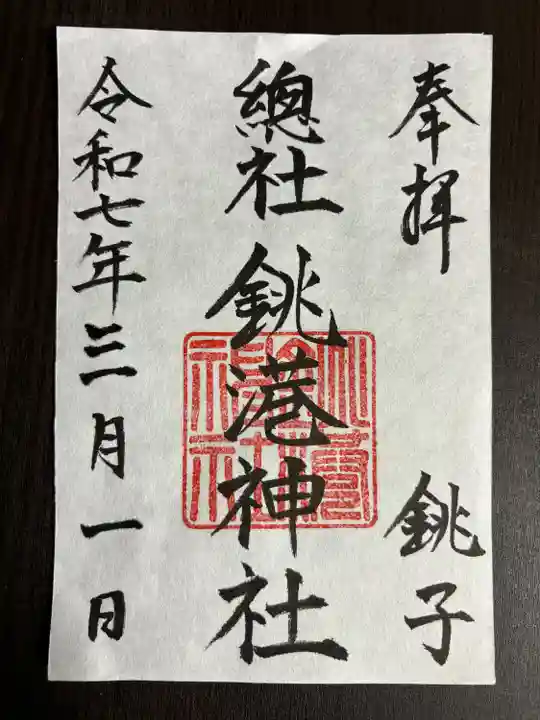 奉拝
銚子
總社 銚港神社
令和七年三月一日